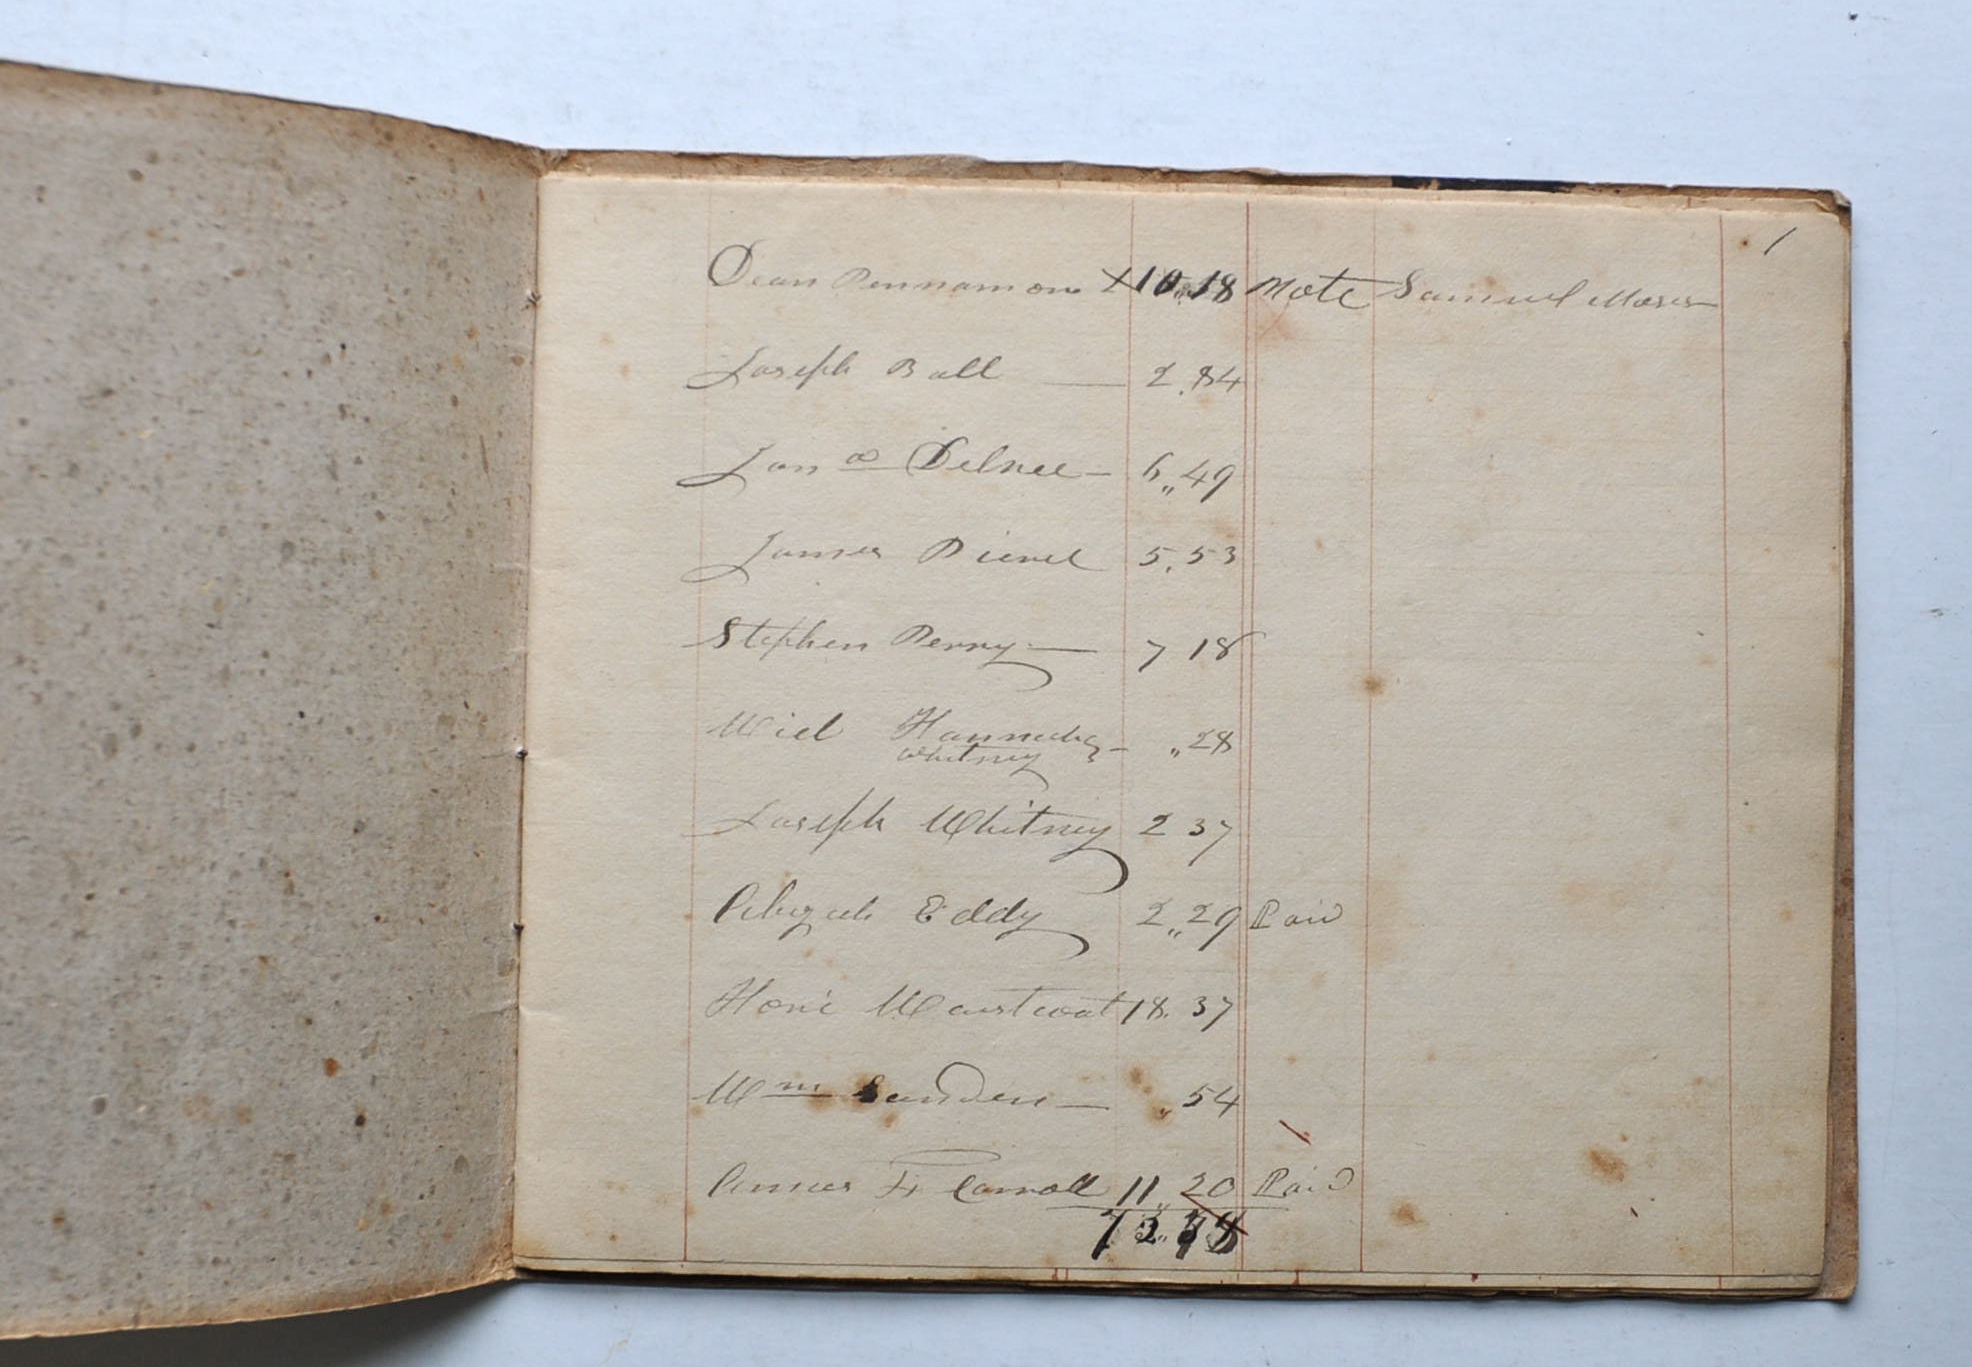 1
Dean Pennamon X 10.18 Note Samuel Moses
Joseph Ball 2.84
Jona 6,,49
James 5.53
Stephen Perry 7 18
Wid Hannah ,,28
Whitney
Joseph Whitney 2 37
Abizah Eddy 2,,29 Paid
18. 37
Wm Sanders ,,54
F Carroll 11,,20 Paid